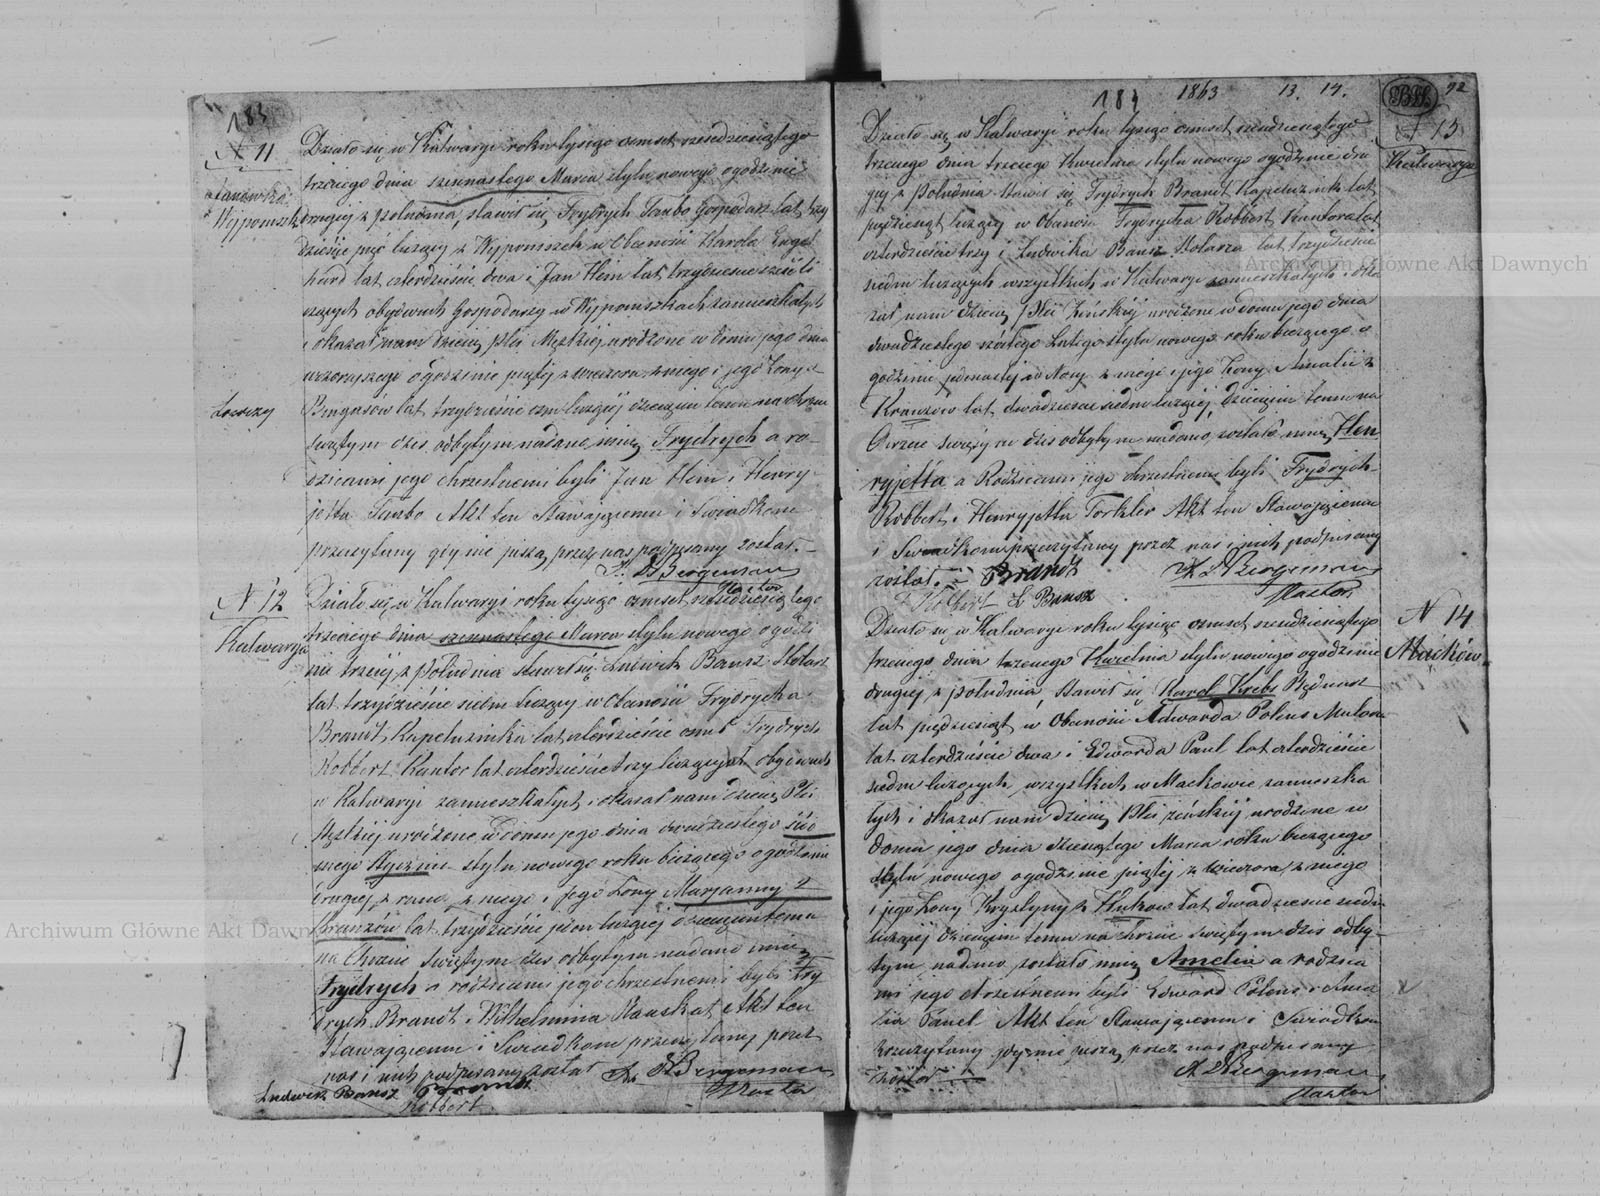 183
N 11
Wyjpomszk
Działo się w Kalwaryi roku tysiąc ośmset sześdziesiątego
trzeciego dnia szesnastego Marca stylu nowego o godzinie
drugiej z południa, stawił się Frydrych Tanbo Gospodarz lat trzy
dzieście pięć liczący z Wyjpomszek w Obecności Karola Engel
hard lat czterdzieście dwa i Jan Hein lat trzydzieście sześć li
czących obydwuch Gospodarzy w Wyjpomszkach zamieszkałych
i okazał nam dziecię płci Męzkiej urodzone w domu jego dnia
wczorajszego o godzinie piątej z wieczora z niego i jego żony
lat trzydzieście ośm liczącej dziecięciu temu na chrzcie
świętym dziś odbytym nadano imię Frydrych a ro-
dzicami jego chrzestnemi byli Jan Hein i Henry-
jetta Tanbo Akt ten Stawającemu i Świadkom
przeczytany gdy nie piszą, przez nas podpisany został.–
Bergeman
Pastor
N 12
Kalwarya
Działo się w Kalwaryi roku tysiąc ośmset sześdziesiątego
trzeciego dnia szesnastego Marca stylu nowego o godzi
nie trzeciej z południa stawił się Ludwik Bansz Stolarz
lat trzydzieście siedm liczący w Obecności Frydrycha
Brandt Kapelusznika lat czterdzieście ośm i Frydrych
Robbert Kantor lat czterdzieście trzy liczących obydwuch
w Kalwaryi zamieszkałych i okazał nam dziecię Płci
Męzkiej urodzone w domu jego dnia dwudziestego siód
mego stylu nowego roku bieżącego o godzinie
drugiej z rana z niego i jego żony Maryanny z
Kranzów lat trzydzieście jeden liczącej dziecięciu temu
na Chrzcie Świętym dziś odbytym nadano imię
Frydrych a rodzicami jego chrzestnemi byli Fry
drych Brandt i Wilhelmina Kauskat Akt ten
Stawającemu i Świadkom przeczytany przez
nas i nich podpisany został
Bergeman
Pastor
Ludwik Bansz Brandt
Robbert
184 1863 13. 14. 92
N 13
Kalwarya
Działo się w Kalwaryi roku tysiąc ośmset sześdziesiątego
trzeciego dnia trzeciego Kwietnia stylu nowego o godzinie dru
giej z południa stawił się Frydrych Brandt Kapelusznik lat
pięćdziesiąt liczący w Obecności Frydrycha Robbert Kantora lat
czterdzieście trzy i Ludwika Bansz Stolarza lat trzydzieście
siedm liczących wszystkich w Kalwaryi zamieszkałych i oka
zał nam dziecię Płci Żeńskiej urodzone w domu jego dnia
dwudziestego szóstego Lutego stylu nowego roku bieżącego o
godzinie jedenastej w Nocy z niego i jego żony Amalii z
Kranzów lat dwadzieście siedm liczącej, dziecięciu temu na
Chrzcie świętym dziś odbytym nadano zostało imię Hen
ryjetta a Rodzicami jego chrzestnemi byli Frydrych
Robbert i Henryjetta Torkler Akt ten Stawającemu
i Świadkom przeczytany przez nas i nich podpisany
został. Brandt Bergeman
Robbert L Bansz Pastor
N 14
Maćków
Działo się w Kalwaryi roku tysiąc ośmset sześdziesiątego
trzeciego dnia trzeciego Kwietnia stylu nowego o godzinie
drugiej z południa, stawił się Karol Krebs Bednarz
lat pięćdziesiąt w Obecności Edwarda Polens
lat czterdzieście dwa i Edwarda Paul lat czterdzieście
siedm liczących, wszystkich w Maćkowie zamieszka
łych i okazał nam dziecię Płci żeńskiej urodzone w
domu jego dnia dziesiątego Marca roku bieżącego
stylu nowego o godzinie piątej z wieczora, z niego
i jego żony Krystyny z lat dwadzieście siedm
liczącej dziecięciu temu na Chrzcie Świętym dziś odby-
tym nadano zostało imię Amelia a rodzica
mi jego chrzestnemi byli Edward Polens i Ama
lia Paul Akt ten Stawającemu i Świadkom
przeczytany gdy nie piszą, przez nas podpisany
został
Bergeman
Pastor
Archiwum Główne Akt Dawnych
Archiwum Główne Akt Dawnych